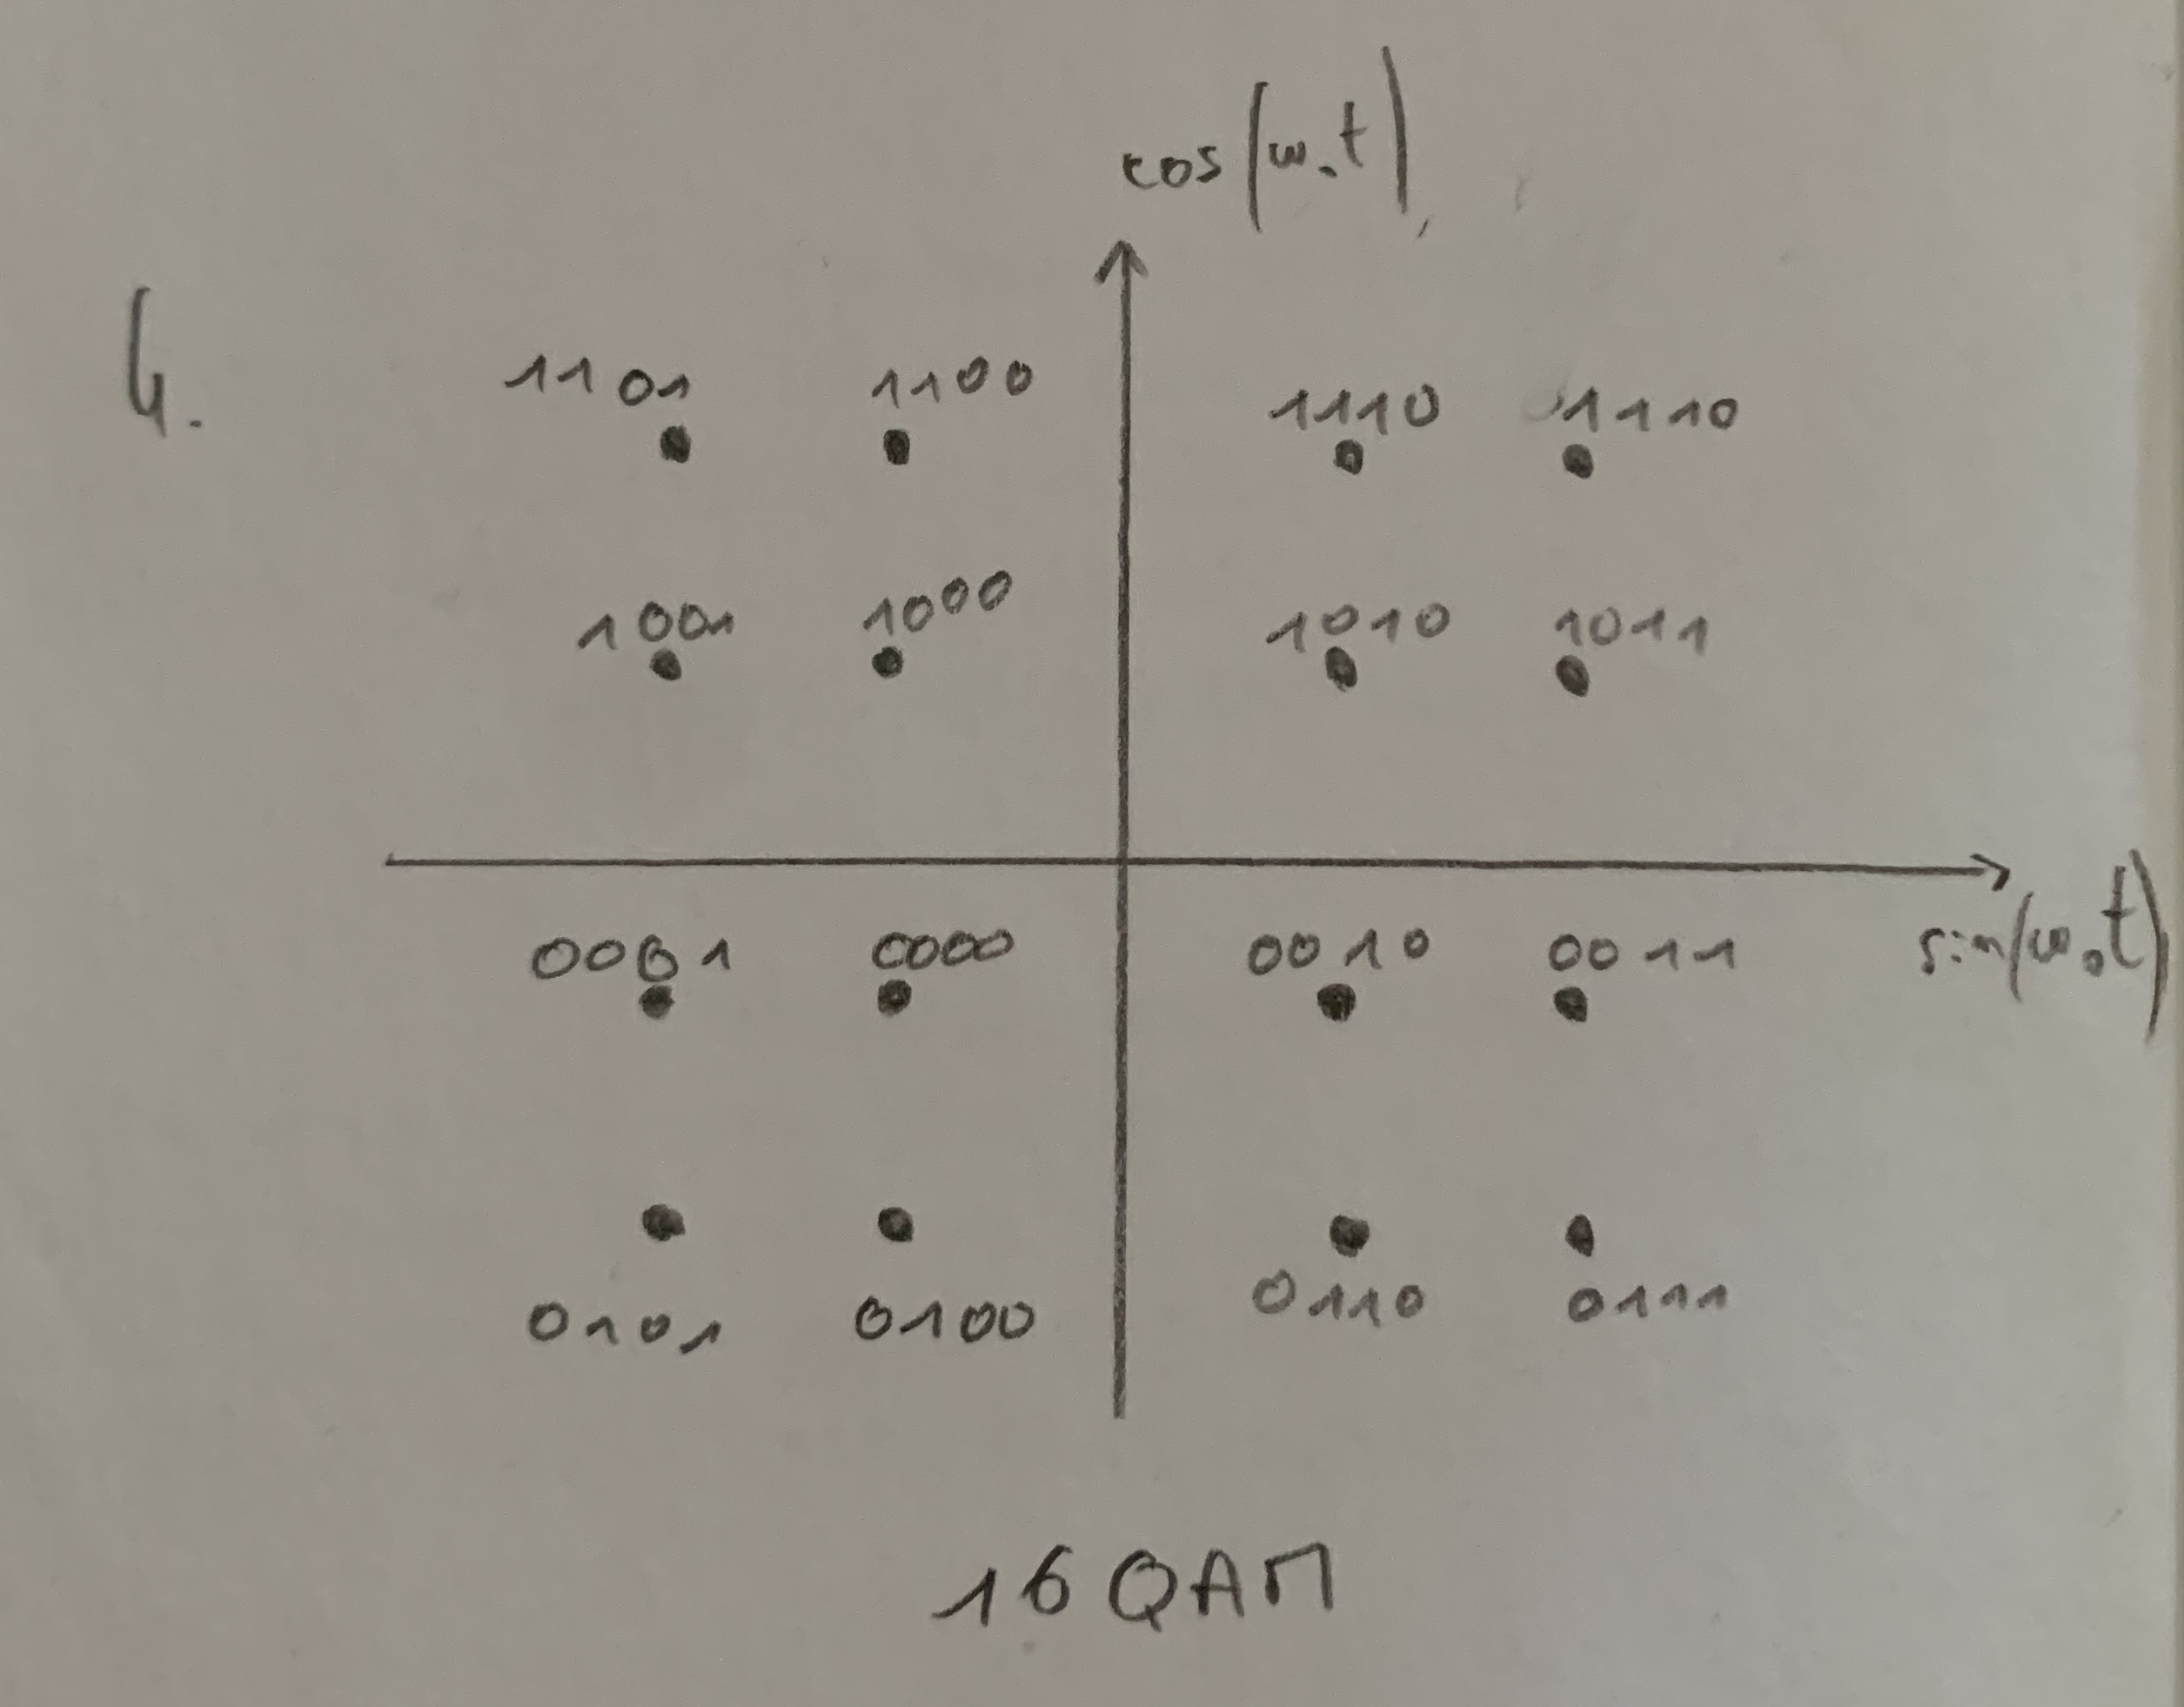 cos(ω.t)
4.
1101 1100 1110 1110
1001 1000 1010 1011
0001 0000 0010 0011
sin(ω.t)
0101 0100 0110 0111
16 QAM